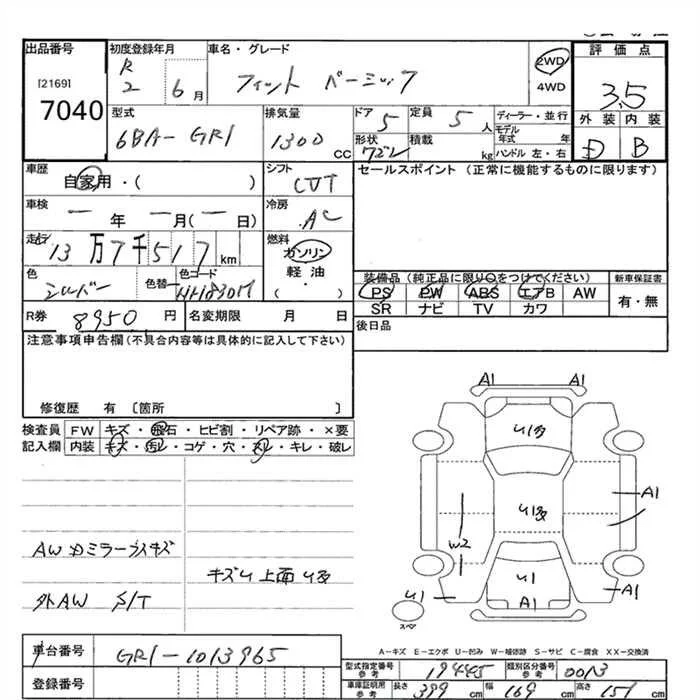 出品番号 初度登録年月 車名・グレード 評価点
[2169] R2 6月 フィット ベーシック 2WD 4WD 3.5
7040 型式 排気量 ドア 定員 ディーラー・並行 外装 内装
6BA-GR1 1300 CC 5 5人 モデル年式 年 D B
形状 積載 kg ハンドル 左・右
車歴 シフト セールスポイント (正常に機能するものに限ります)
自家用・( ) CVT
車検 冷房
ー年 ー月(ー日) AC
走行 燃料
13万7千517km ガソリン
色 色替 色コード 軽油・ 装備品 (純正品に限り○をつけてください) 新車保証書
シルバー NH830M ( ) PS PW ABS エアB AW 有・無
SR ナビ TV カワ
R券 8950円 名変期限 月 日 後日品
注意事項申告欄(不具合内容等は具体的に記入して下さい)
修復歴 有 〔箇所 〕
検査員 FW キズ・飛石・ヒビ割・リペア跡・×要
記入欄 内装 キズ・汚レ・コゲ・穴・スレ・キレ・破レ
A1 A1
U1
U1
A1
W2
AW
外AW S/T
キズU 上面
U1 U1 A1 A1
スペア
A-キズ E-エクボ U-凹み W-補修跡 S-サビ C-腐食 XX-交換済
車台番号 GR1-1013965
型式指定番号 参考 19445 類別区分番号 参考 0013
登録番号 車庫証明用 参考 長さ 399cm 幅 169cm 高さ 151cm